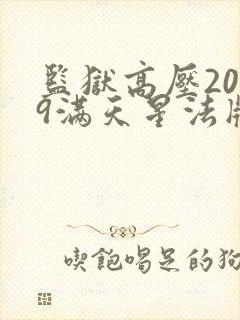 監獄高壓20
9满天星法版
喫飽喝足的狗